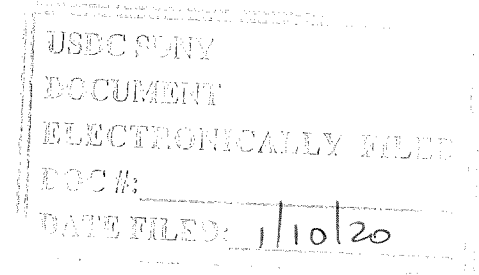 USDC SDNY
DOCUMENT
ELECTRONICALLY FILED
DOC #:
DATE FILED: 1/10/20